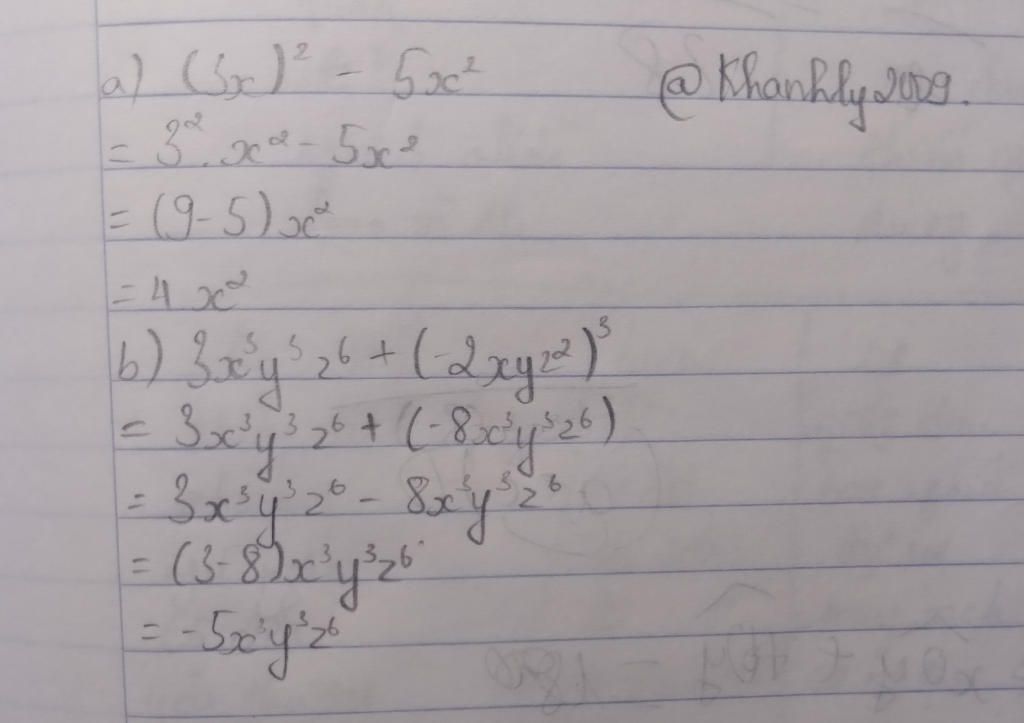 a) (3x)² - 5x² @Khanhly2009.
= 3².x² - 5x²
= (9-5)x²
= 4x²
b) 3x³y³z⁶ + (-2xyz²)³
= 3x³y³z⁶ + (-8x³y³z⁶)
= 3x³y³z⁶ - 8x³y³z⁶
= (3-8)x³y³z⁶
= -5x³y³z⁶